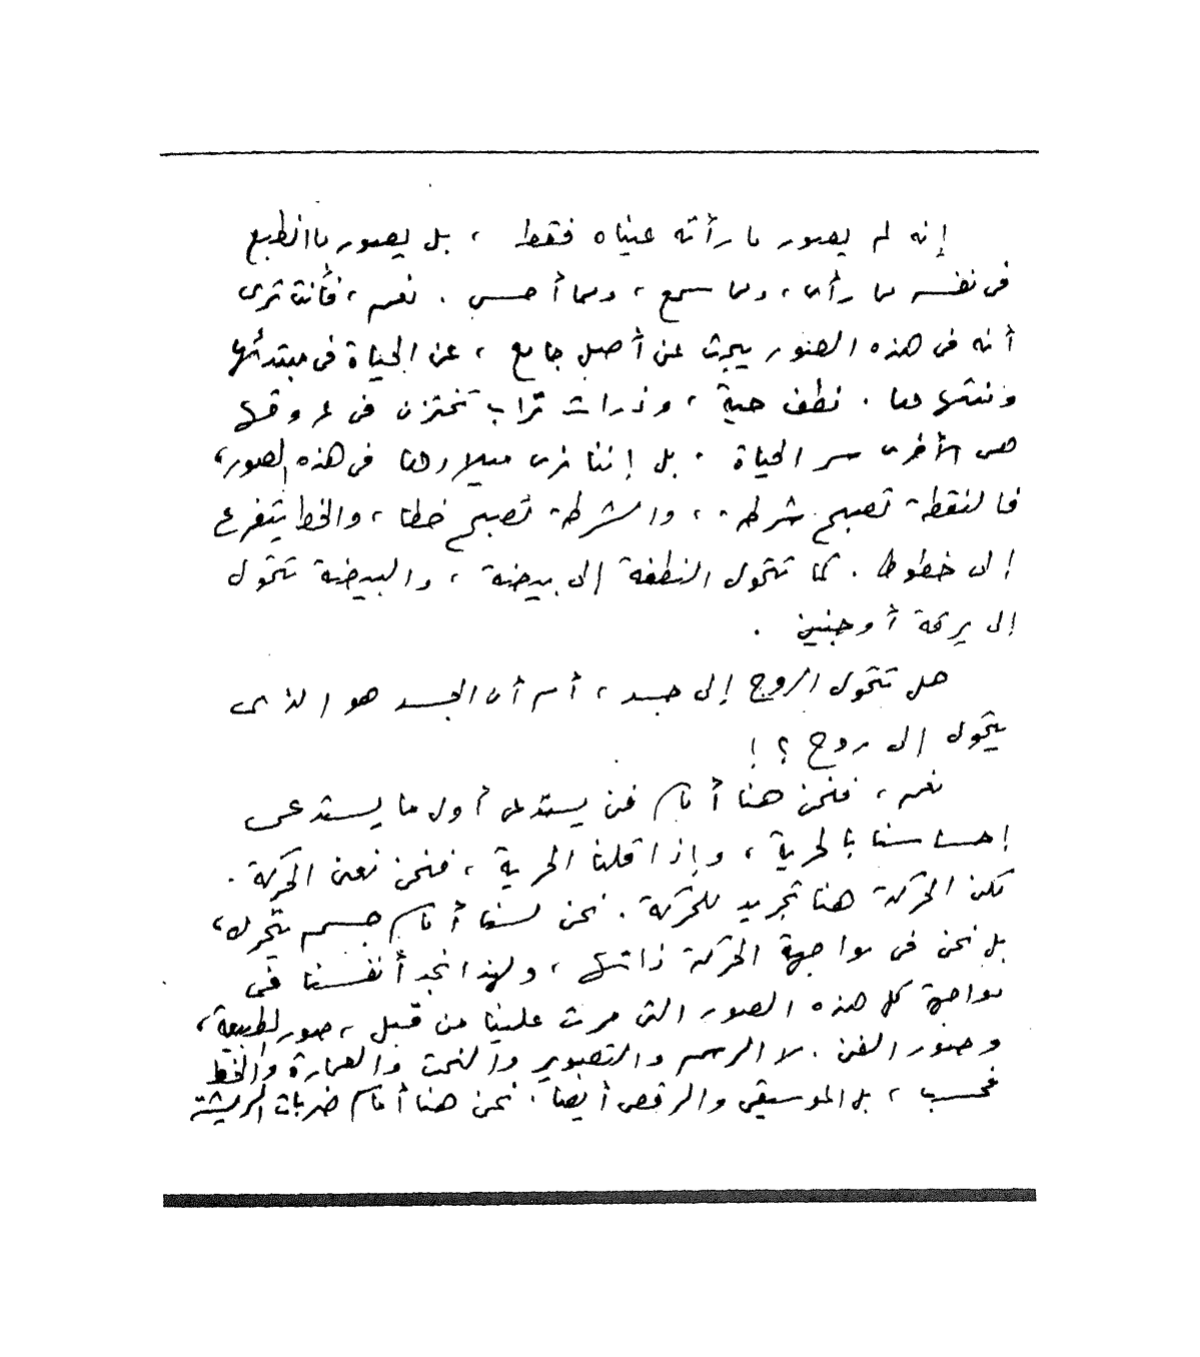 إنه لم يصور ما رأته عيناه فقط ، بل يصور ما انطبع
فى نفسه مما رأى ، ومما سمع ، ومما أحس . نعم ، فأنت ترى
أنه فى هذه الصور يبحث عن أصل جامع ، عن الحياة فى مبتدئها
ومنتهاها . نطف حية ، وذرات تراب تختزن فى عروقها
هى الأخرى سر الحياة . بل إننا نرى ميلادها فى هذه الصور ،
فالنقطة تصبح شرطة ، والشرطة تصبح خطا ، والخط يتفرع
إلى خطوط . كما تتحول النطفة إلى بيضة ، والبيضة تتحول
إلى يرقة أو جنين .
هل تتحول الروح إلى جسد ، أم أن الجسد هو الذى
يتحول إلى روح ؟ !
نعم ، فنحن هنا أمام فن يستدعى أول ما يستدعى
إحساسنا بالحرية ، وإذا قلنا الحرية ، فنحن نعنى الحركة .
لكن الحركة هنا تجريد للحركة . نحن لسنا أمام جسم يتحرك ،
بل نحن فى مواجهة الحركة ذاتها ، ولهذا نجد أنفسنا فى
مواجهة كل هذه الصور التى مرت علينا من قبل ، صور الطبيعة ،
وصور الفن . لا الرسم والتصوير والنحت والعمارة والخط
فحسب ، بل الموسيقى والرقص أيضا . نحن هنا أمام ضربات الريشة